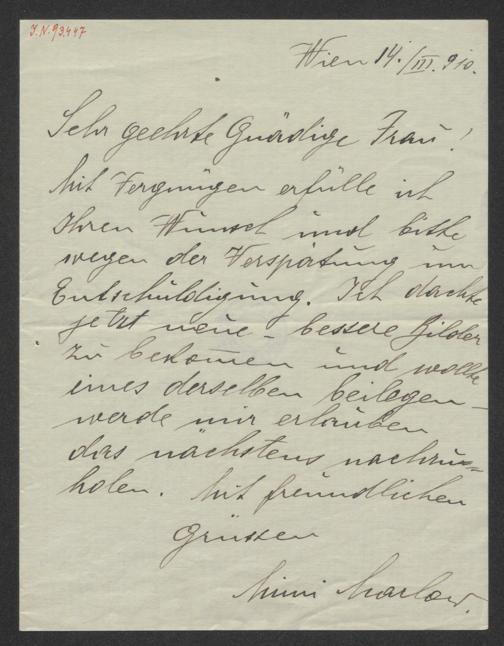 J.N. 93.447
Wien 14./III. 910.
Sehr geehrte Gnädige Frau!
Mit Vergnügen erfülle ich
Ihren Wunsch und bitte
wegen der Verspätung um
Entschuldigung. Ich dachte
jetzt neue – bessere Bilder
zu bekommen und wollte
eines derselben beilegen –
werde mir erlauben
das nächstens nachzu=
holen. Mit freundlichen
Grüssen
Mimi Marlow.